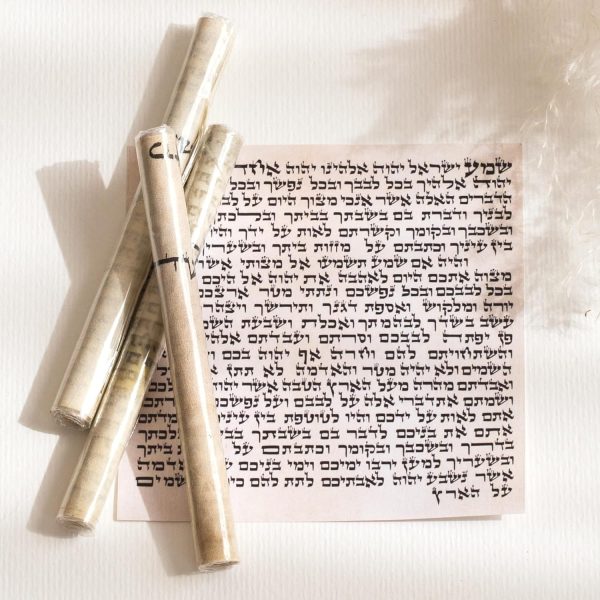 שמע ישראל יהוה אלהינו יהוה אחד
יהוה אלהיך בכל לבבך ובכל נפשך ובכל
הדברים האלה אשר אנכי מצוך היום על לבב
לבניך ודברת בם בשבתך בביתך ובלכתך
ובשכבך ובקומך וקשרתם לאות על ידך והיו
בין עיניך וכתבתם על מזזות ביתך ובשעריך
והיה אם שמע תשמעו אל מצותי אשר
מצוה אתכם היום לאהבה את יהוה אלהיכם
בכל לבבכם ובכל נפשכם ונתתי מטר ארצכם
יורה ומלקוש ואספת דגנך ותירשך ויצהר
עשב בשדך לבהמתך ואכלת ושבעת
פן יפתה לבבכם וסרתם ועבדתם אלה
והשתחויתם להם וחרה אף יהוה בכם
השמים ולא יהיה מטר והאדמה לא תתן
ואבדתם מהרה מעל הארץ הטבה אשר יהוה
ושמתם את דברי אלה על לבבכם ועל נפשכם
אתם לאות על ידכם והיו לטוטפת בין עיניכם
אתם את בניכם לדבר בם בשבתך בביתך ובלכתך
בדרך ובשכבך ובקומך וכתבתם על
ובשעריך למען ירבו ימיכם וימי בניכם על האדמה
אשר נשבע יהוה לאבתיכם לתת להם כימי השמים
על הארץ